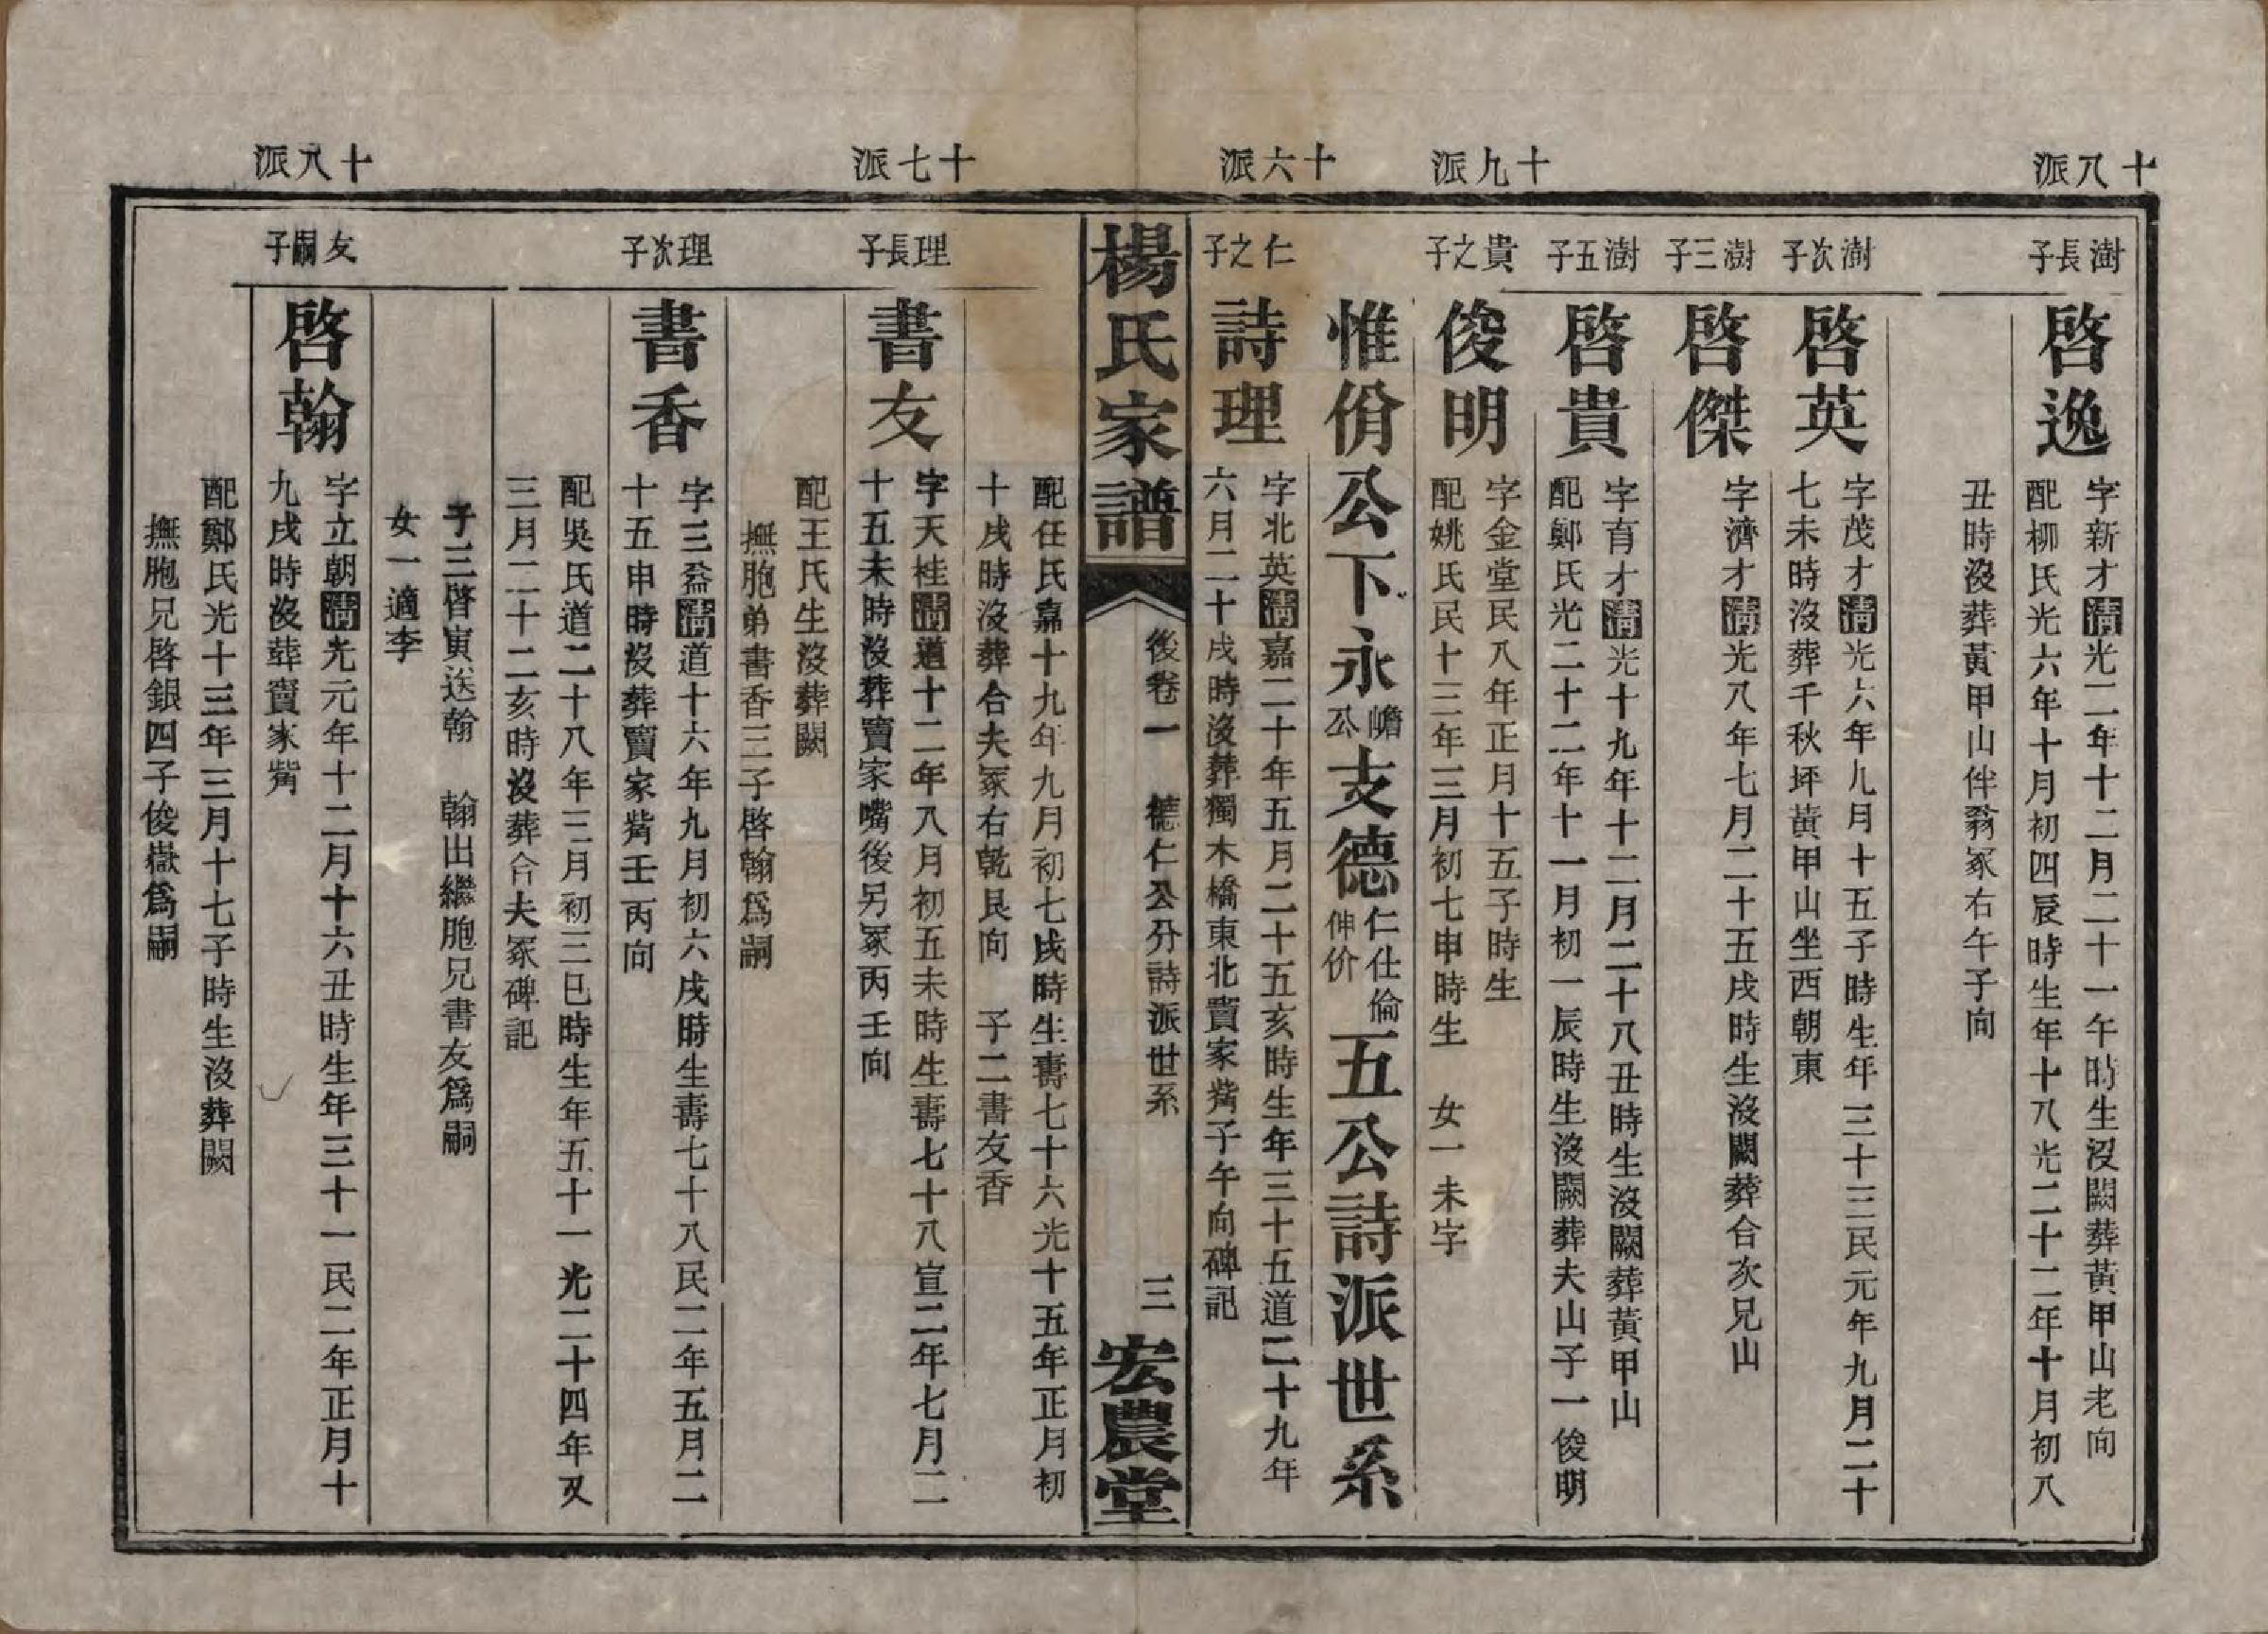 十八派
澍長子
啓逸
字新才清光二年十二月二十一午時生沒闕葬黃甲山老向
配柳氏光六年十月初四辰時生年十八光二十二年十月初八
丑時沒葬黃甲山伴翁冢右午子向
澍次子
啓英
字茂才清光六年九月十五子時生年三十三民元年九月二十
七未時沒葬千秋坪黃甲山坐西朝東
澍三子
啓傑
字濟才清光八年七月二十五戌時生沒闕葬合次兄山
澍五子
啓貴
字育才清光十九年十二月二十八丑時生沒闕葬黃甲山
配鄭氏光二十二年十一月初一辰時生沒闕葬夫山子一俊明
十九派
貴之子
俊明
字金堂民八年正月十五子時生
配姚氏民十三年三月初七申時生 女一未字
惟佾公下永嶦公支德仁仕倫伸价五公詩派世系
十六派
仁之子
詩理
字北英清嘉二十年五月二十五亥時生年三十五道二十九年
六月二十戌時沒葬獨木橋東北竇家觜子午向碑記
楊氏家譜
後卷一 德仁公分詩派世系
三
宏農堂
配任氏嘉十九年九月初七戌時生壽七十六光十五年正月初
十戌時沒葬合夫冢右乾艮向 子二書友香
十七派
理長子
書友
字天桂清道十二年八月初五未時生壽七十八宣二年七月二
十五未時沒葬竇家嘴後另冢丙壬向
配王氏生沒葬闕
撫胞弟書香三子啓翰爲嗣
理次子
書香
字三益清道十六年九月初六戌時生壽七十八民二年五月二
十五申時沒葬竇家觜壬丙向
配吳氏道二十八年三月初三巳時生年五十一光二十四年又
三月二十二亥時沒葬合夫冢碑記
子三啓寅送翰 翰出繼胞兄書友爲嗣
女一適李
十八派
友嗣子
啓翰
字立朝清光元年十二月十六丑時生年三十一民二年正月十
九戌時沒葬竇家觜
配鄭氏光十三年三月十七子時生沒葬闕
撫胞兄啓銀四子俊嶽爲嗣